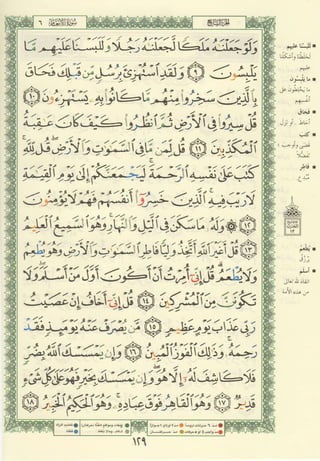 سورة الأنعام ٦
الجزء السابع
وَلَوْ جَعَلْنَٰهُ مَلَكًا لَّجَعَلْنَٰهُ رَجُلًا وَلَلَبَسْنَا عَلَيْهِم مَّا
يَلْبِسُونَ ٩ وَلَقَدِ ٱسْتُهْزِئَ بِرُسُلٍ مِّن قَبْلِكَ فَحَاقَ
بِٱلَّذِينَ سَخِرُوا۟ مِنْهُم مَّا كَانُوا۟ بِهِۦ يَسْتَهْزِءُونَ ١٠
قُلْ سِيرُوا۟ فِى ٱلْأَرْضِ ثُمَّ ٱنظُرُوا۟ كَيْفَ كَانَ عَٰقِبَةُ
ٱلْمُكَذِّبِينَ ١١ قُل لِّمَن مَّا فِى ٱلسَّمَٰوَٰتِ وَٱلْأَرْضِ ۖ قُل لِّلَّهِ ۚ
كَتَبَ عَلَىٰ نَفْسِهِ ٱلرَّحْمَةَ ۚ لَيَجْمَعَنَّكُمْ إِلَىٰ يَوْمِ ٱلْقِيَٰمَةِ
لَا رَيْبَ فِيهِ ۚ ٱلَّذِينَ خَسِرُوٓا۟ أَنفُسَهُمْ فَهُمْ لَا يُؤْمِنُونَ
١٢ وَلَهُۥ مَا سَكَنَ فِى ٱلَّيْلِ وَٱلنَّهَارِ ۚ وَهُوَ ٱلسَّمِيعُ ٱلْعَلِيمُ
١٣ قُلْ أَغَيْرَ ٱللَّهِ أَتَّخِذُ وَلِيًّا فَاطِرِ ٱلسَّمَٰوَٰتِ وَٱلْأَرْضِ وَهُوَ يُطْعِمُ
وَلَا يُطْعَمُ ۗ قُلْ إِنِّىٓ أُمِرْتُ أَنْ أَكُونَ أَوَّلَ مَنْ أَسْلَمَ ۖ وَلَا
تَكُونَنَّ مِنَ ٱلْمُشْرِكِينَ ١٤ قُلْ إِنِّىٓ أَخَافُ إِنْ عَصَيْتُ
رَبِّى عَذَابَ يَوْمٍ عَظِيمٍ ١٥ مَّن يُصْرَفْ عَنْهُ يَوْمَئِذٍ فَقَدْ
رَحِمَهُۥ ۚ وَذَٰلِكَ ٱلْفَوْزُ ٱلْمُبِينُ ١٦ وَإِن يَمْسَسْكَ ٱللَّهُ بِضُرٍّ
فَلَا كَاشِفَ لَهُۥٓ إِلَّا هُوَ ۖ وَإِن يَمْسَسْكَ بِخَيْرٍ فَهُوَ عَلَىٰ كُلِّ شَىْءٍ
قَدِيرٌ ١٧ وَهُوَ ٱلْقَاهِرُ فَوْقَ عِبَادِهِۦ ۚ وَهُوَ ٱلْحَكِيمُ ٱلْخَبِيرُ ١٨
١٢٩